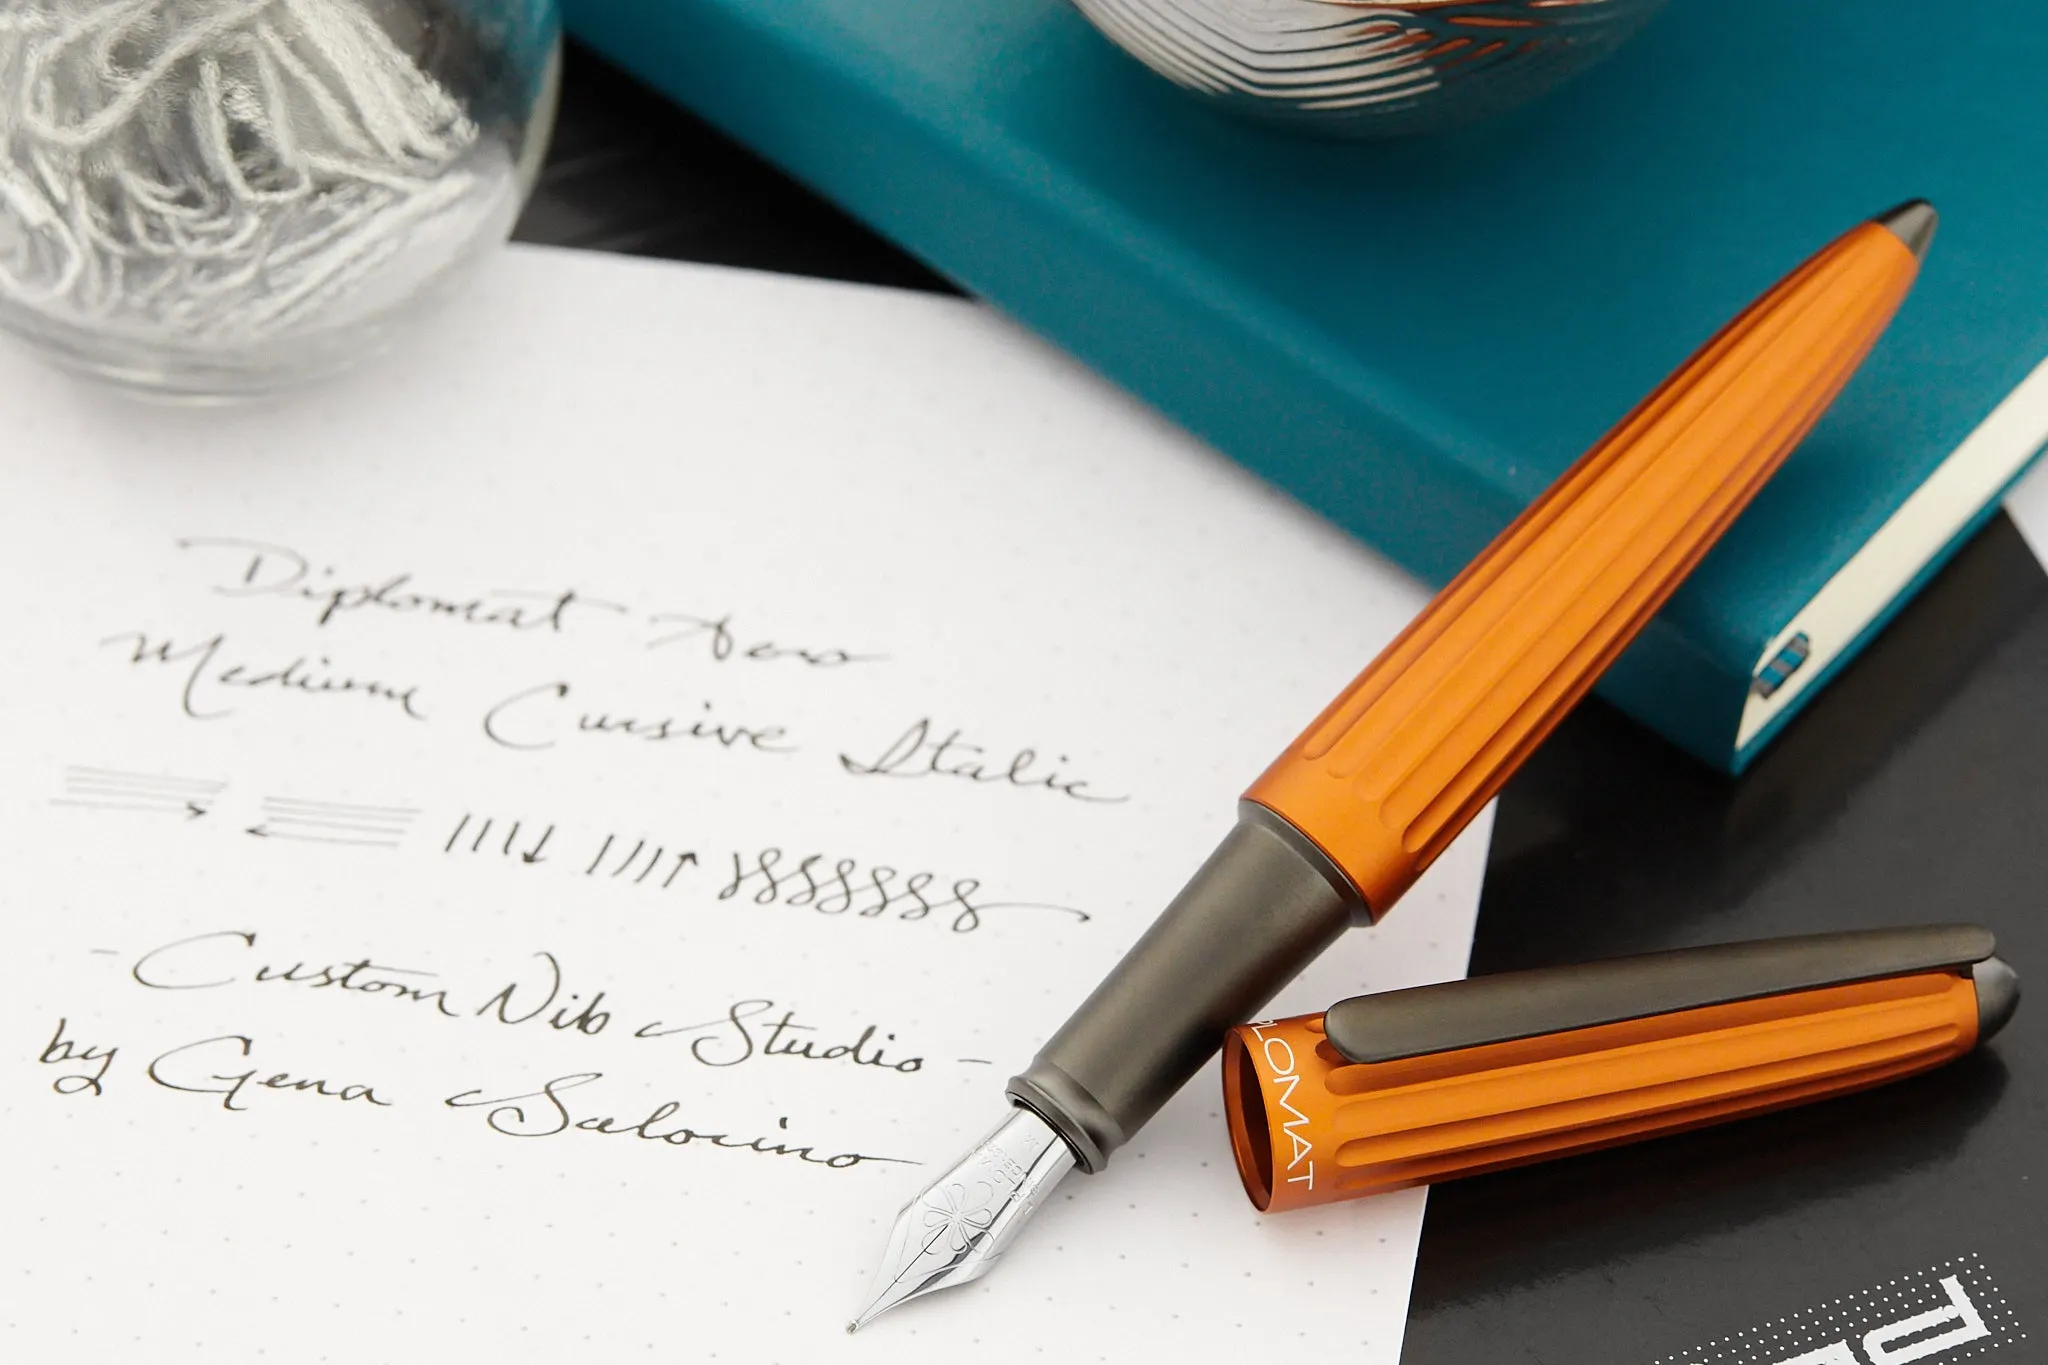 Diplomat Aero
Medium Cursive Italic
- Custom Nib Studio -
by Gena Salorino
PLOMAT